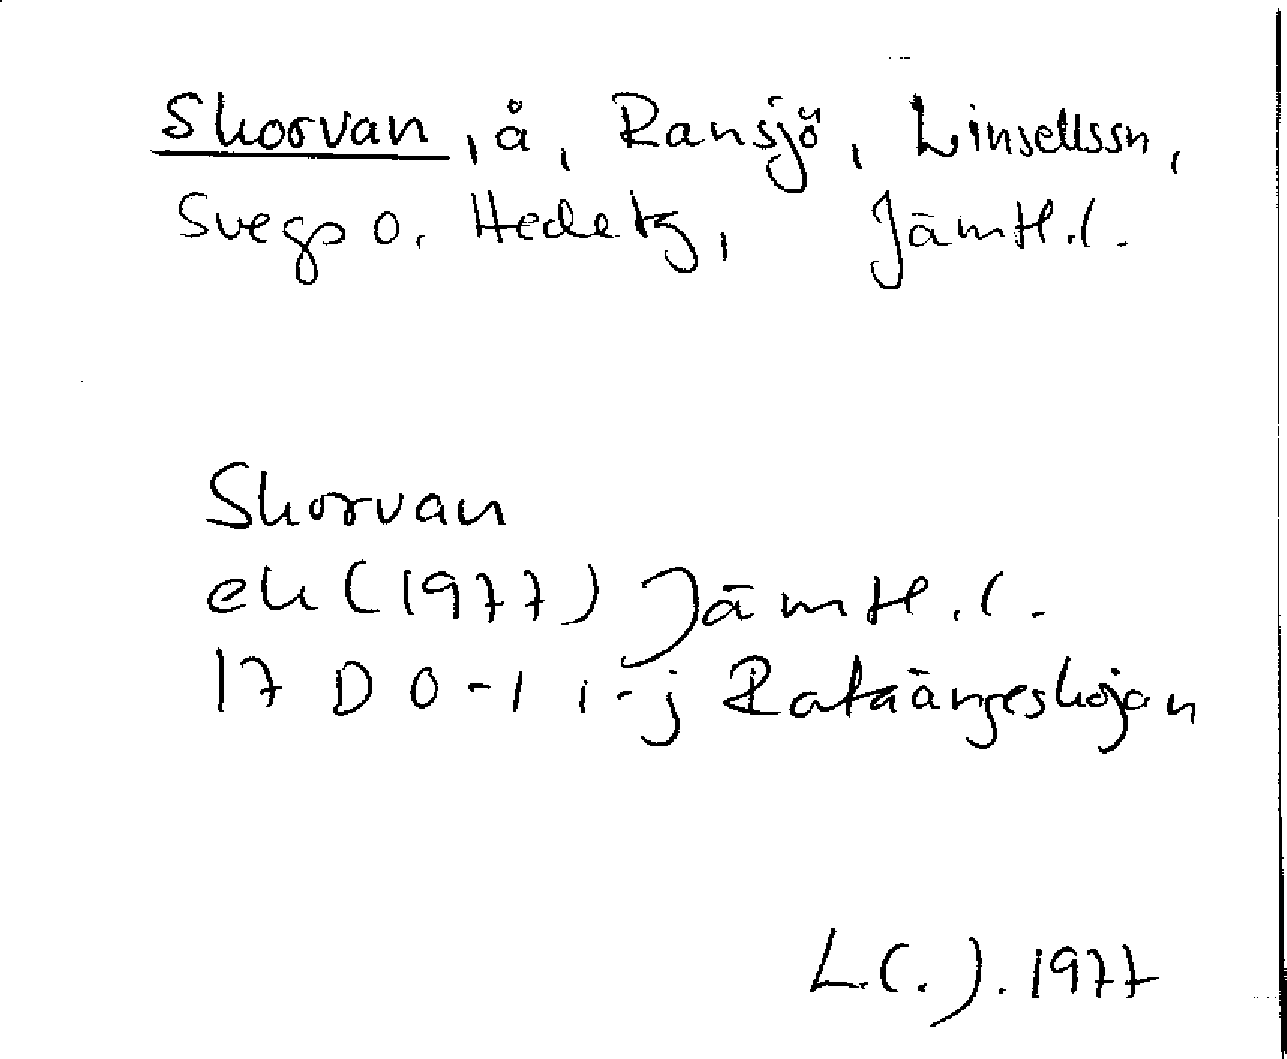 Skorvan, å, Ransjö, Linsellssn,
Svegs o. Hede tg, Jämtl.l.
Skorvan
ek (1977) Jämtl.l.
17 D 0-1 i-j Rataängeskojan
L.C.J. 1977